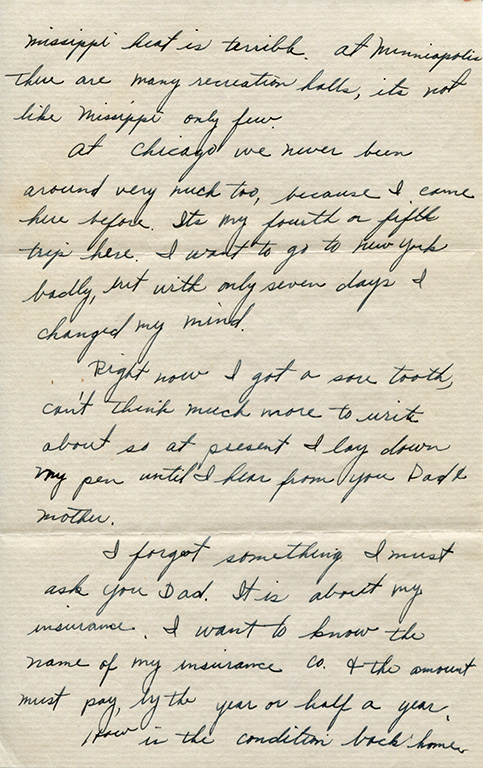 Missippi heat is terrible. At Minneapolis
there are many recreation halls, its not
like Missippi only few.
At Chicago we never been
around very much too, because I came
here before. Its my fourth or fifth
trip here. I want to go to New York
badly, but with only seven days I
changed my mind.
Right now I got a sore tooth,
can't think much more to write
about so at present I lay down
my pen until I hear from you Dad &
mother.
I forgot something I must
ask you Dad. It is about my
insurance. I want to know the
name of my insurance Co. & the amount
must pay, by the year or half a year.
How is the condition back home